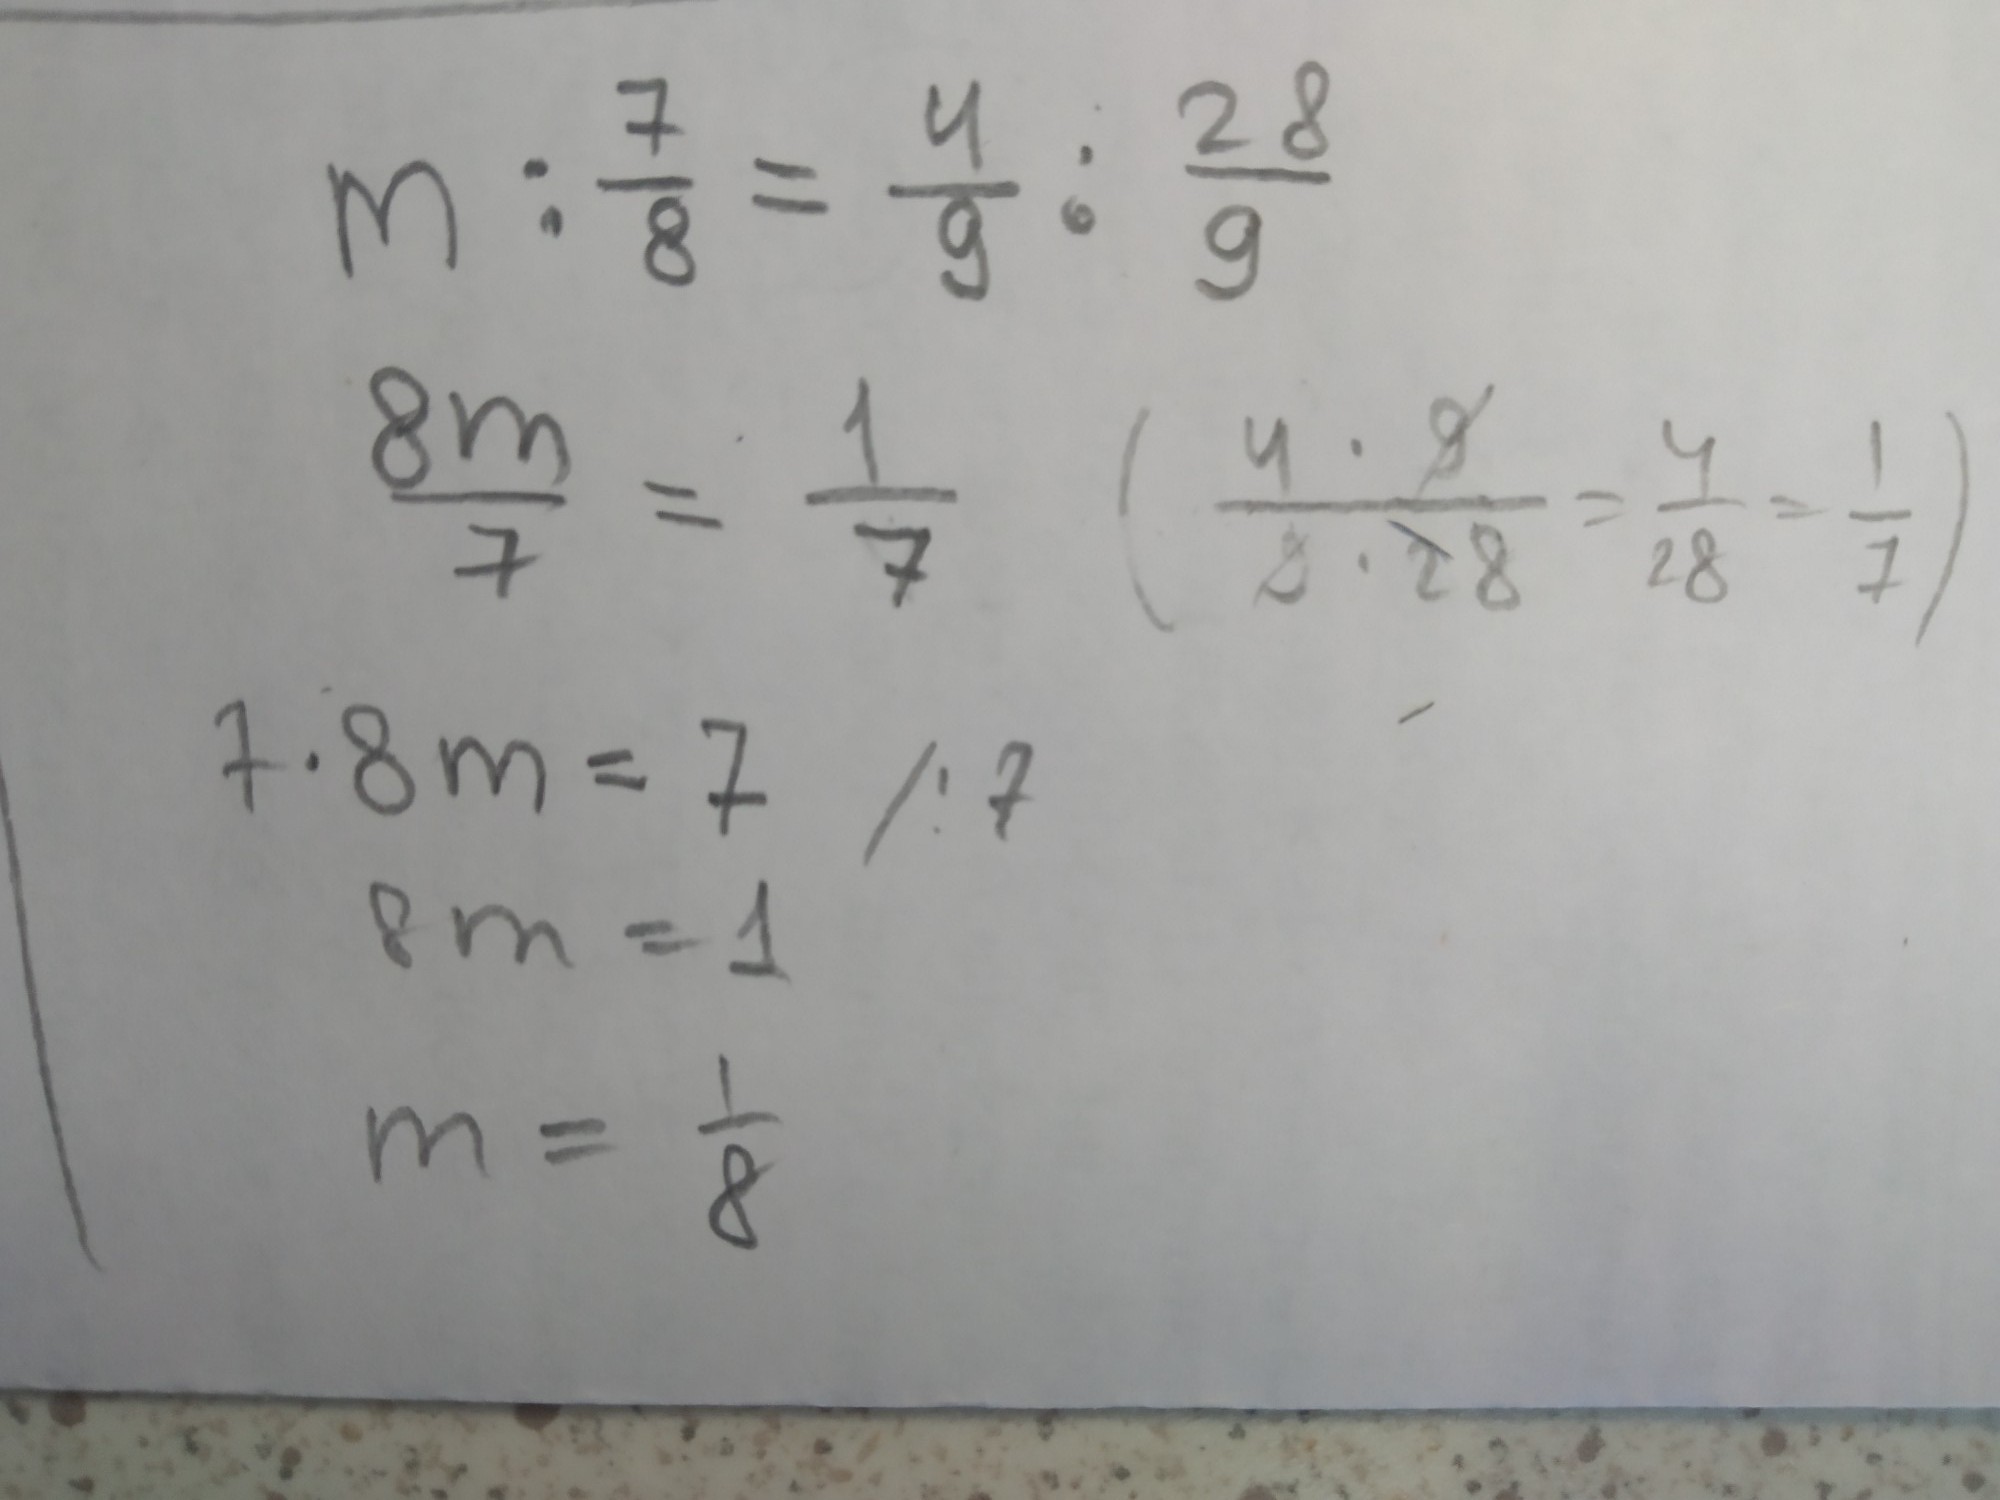 m : 7/8 = 4/9 : 28/9
8m/7 = 1/7 (4 · 9 / 9 · 28 = 4/28 = 1/7)
7 · 8m = 7 / : 7
8m = 1
m = 1/8